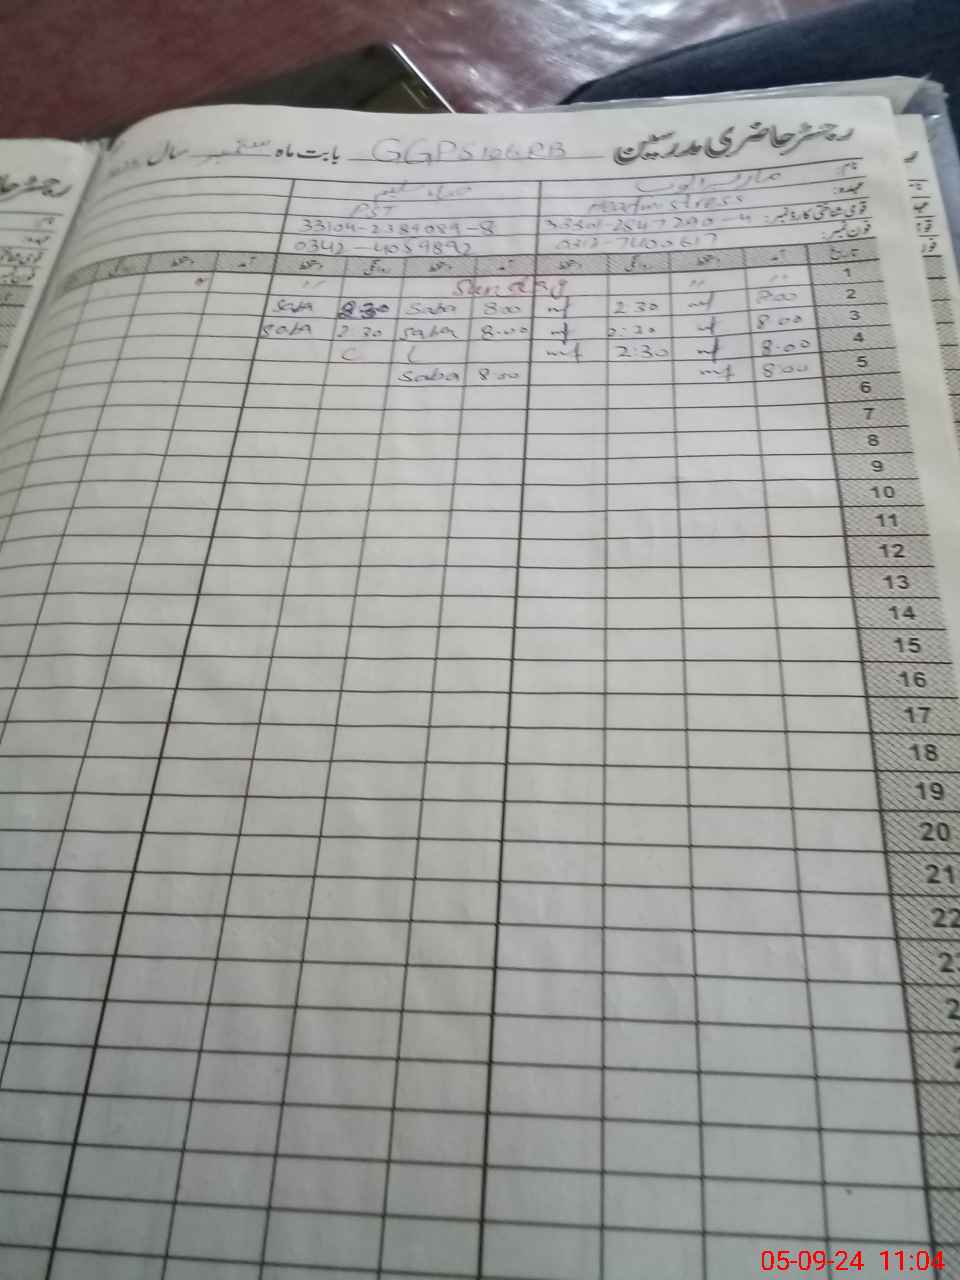 رجسٹر حاضری مدرسین GGPS 106 RB بابت ماہ ستمبر سال
نام:
عہدہ: Headmistress PST
قومی شناختی کارڈ نمبر: 33104-2389089-8
فون نمبر: 0312-7400617 0342-4059892
تاریخ آمد دستخط روانگی دستخط آمد دستخط روانگی دستخط آمد دستخط روانگی
1 " " Sunday "
2 8:00 mf 2:30 mf 8:00 Saba 2:30 Saba
3 8:00 mf 2:30 mf 8:00 Saba 2:30 Saba
4 8:00 mf 2:30 mf L C
5 8:00 mf 8:00 Saba
6
7
8
9
10
11
12
13
14
15
16
17
18
19
20
21
22
05-09-24 11:04